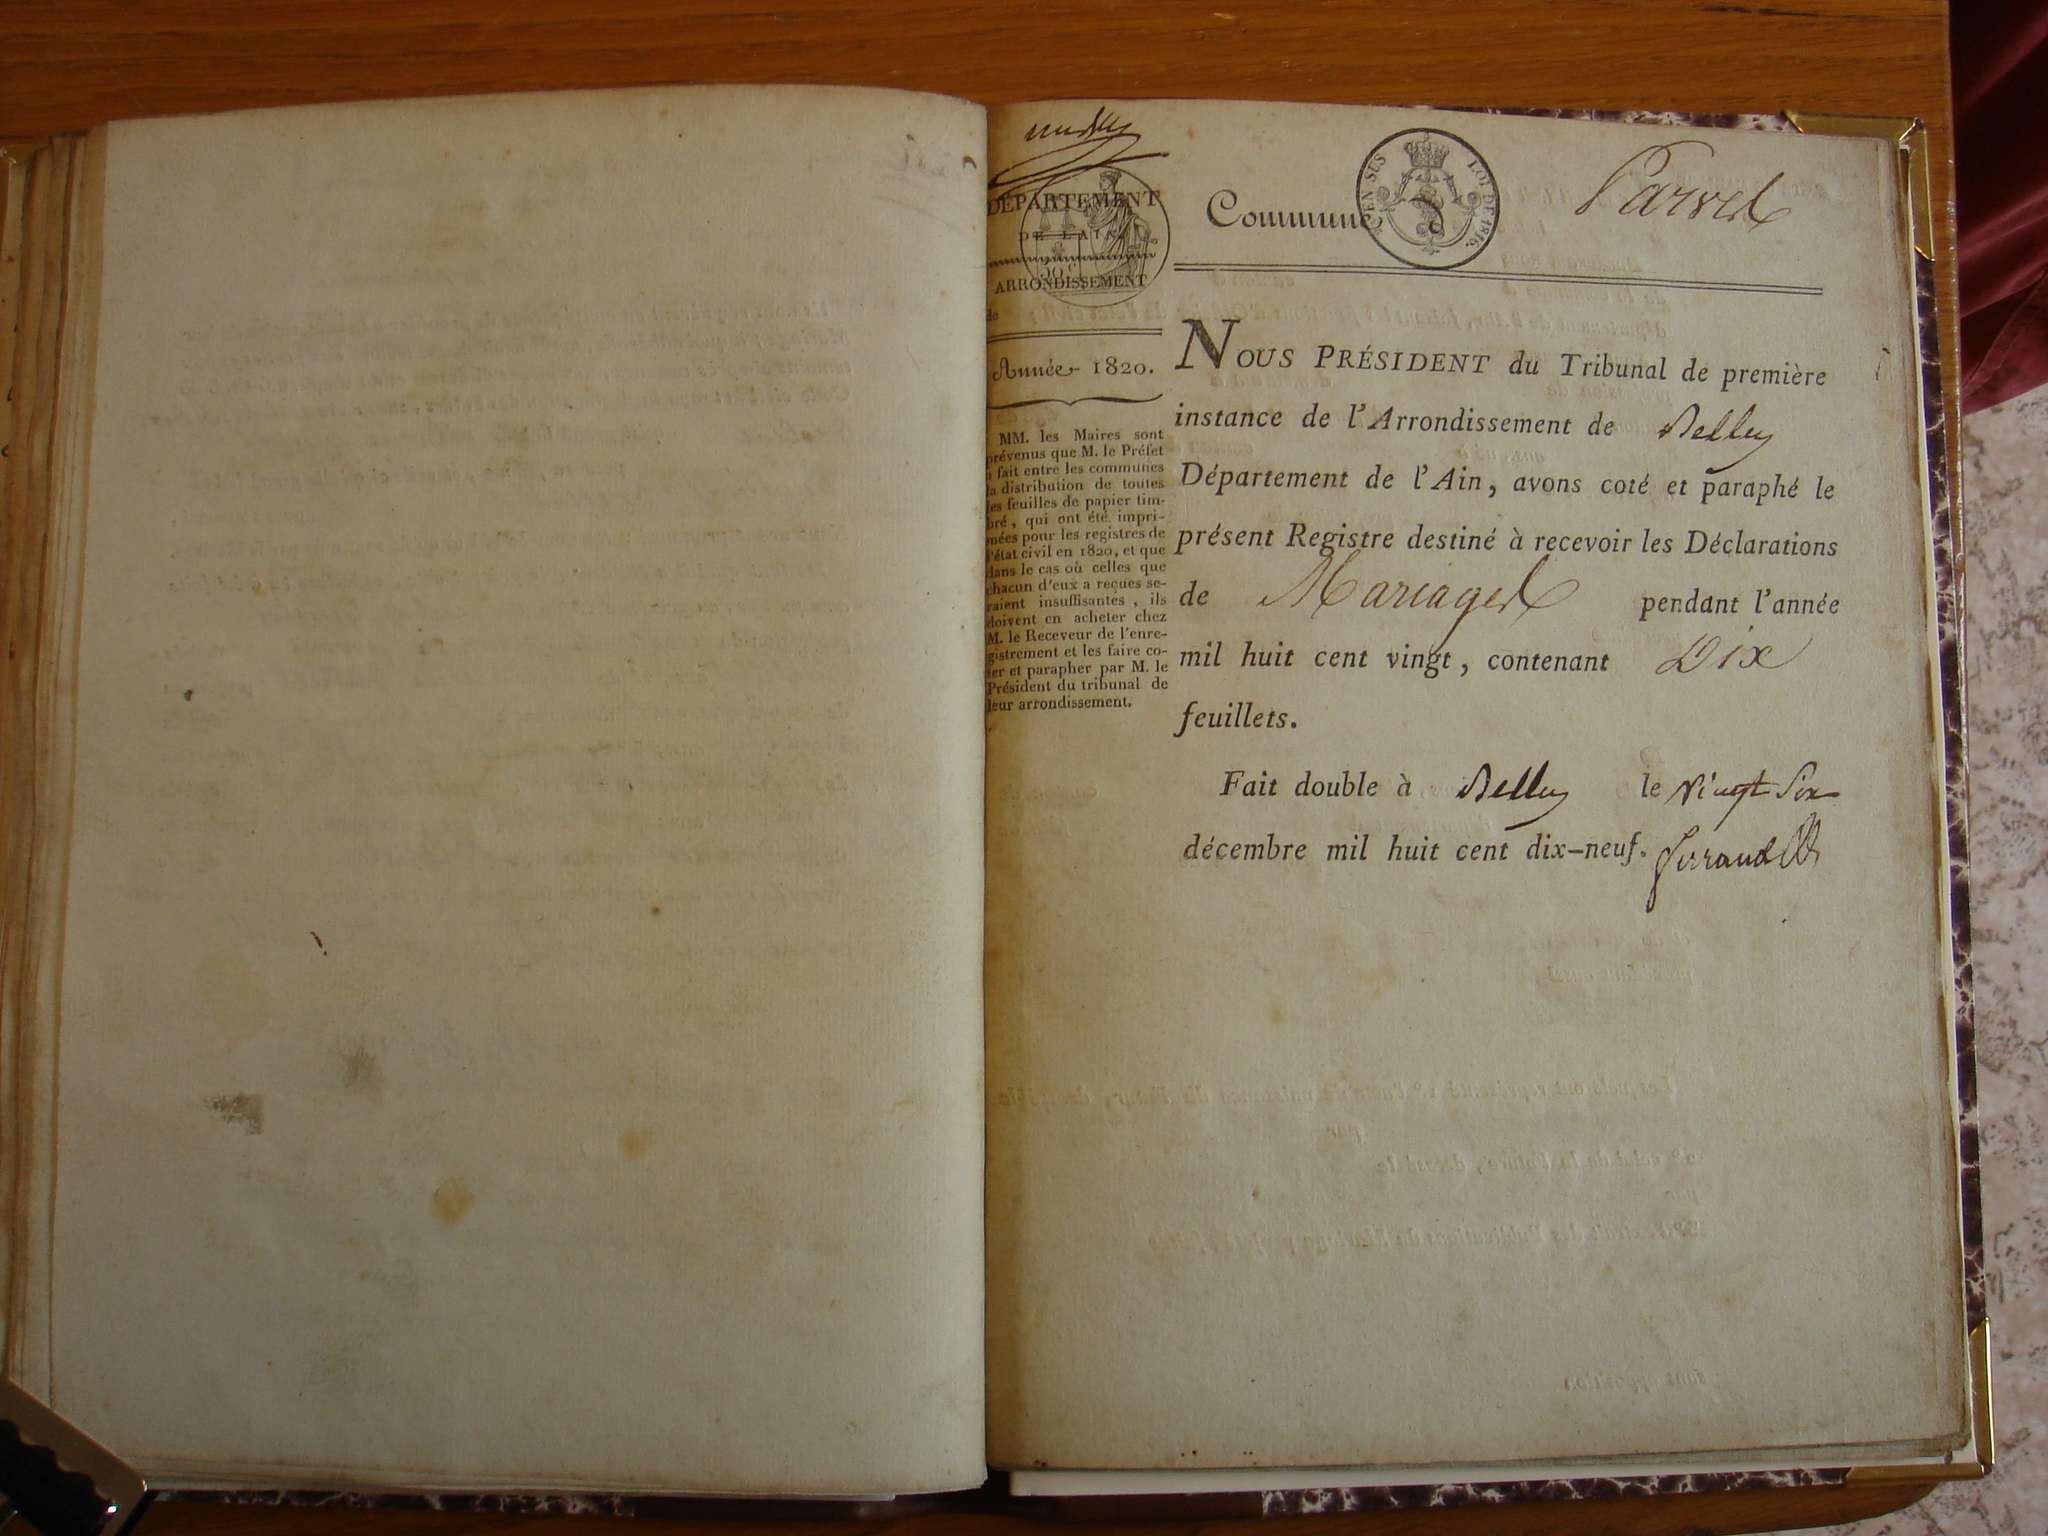 DÉPARTEMENT
DE L'AIN
50 c
ARRONDISSEMENT
de
Année 1820.
MM. les Maires sont
prévenus que M. le Préfet
a fait entre les communes
la distribution de toutes
les feuilles de papier tim-
bré, qui ont été impri-
mées pour les registres de
l'état civil en 1820, et que
dans le cas où celles que
chacun d'eux a reçues se-
raient insuffisantes, ils
doivent en acheter chez
M. le Receveur de l'enre-
gistrement et les faire co-
ter et parapher par M. le
Président du tribunal de
leur arrondissement.
Commune d
EN SUS LOI DE 1816.
Parves
NOUS PRÉSIDENT du Tribunal de première
instance de l'Arrondissement de Belley
Département de l'Ain, avons coté et paraphé le
présent Registre destiné à recevoir les Déclarations
de Mariages pendant l'année
mil huit cent vingt, contenant Dix
feuillets.
Fait double à Belley le vingt Six
décembre mil huit cent dix-neuf.